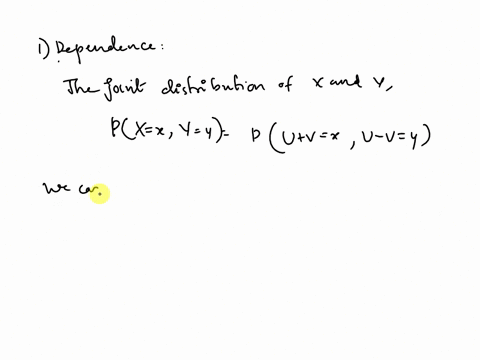 1) Dependence:
The joint distribution of X and Y,
P(X=x, Y=y) = P(U+V=x, U-V=y)
We ca